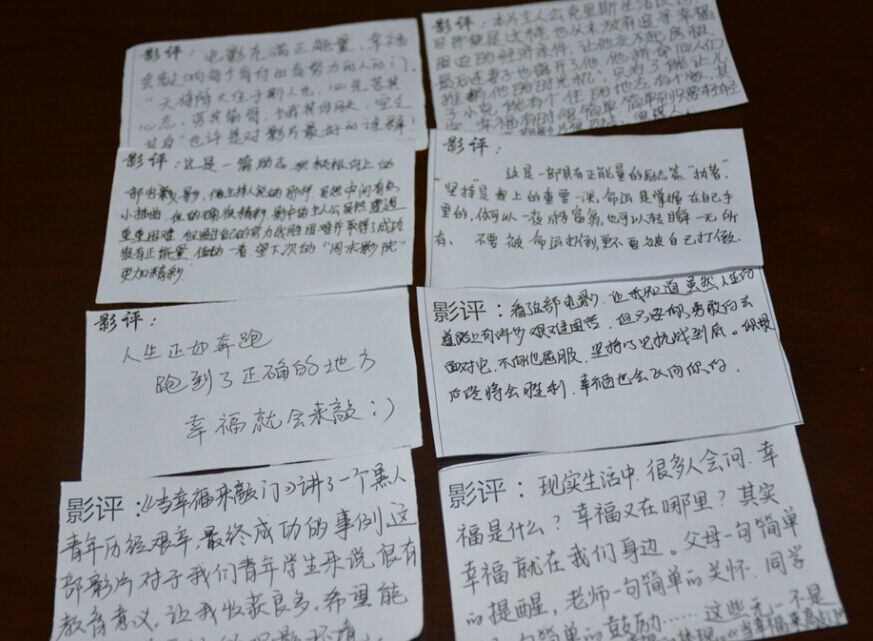 影评：电影充满正能量，幸福
会敲响每个肯付出肯努力的人的门，
“天将降大任于斯人也，必先苦其
心志，劳其筋骨，饿其体肤，空乏
其身”也许是对影片最好的诠释！
影评：本片主人公克里斯
也从未放弃追寻幸福
的经济条件，让他交不起房租
最后妻子也离开了他，他拼命向人们
推销他的 “光机”，只为了能让儿
子小克能有个住的地方，有个家，其
实，幸福有时很简单，简单到只要轻轻
影评：这是一篇励志，积极向上的
小插曲，但的确很精彩，影片中的主人公虽然遭遇
重重困难，但通过自己的努力战胜困难并取得了成功
很有正能量，值的一看，望下次的“周末影院”
更加精彩．
影评：
这是一部具有正能量的励志篇“执着”，
“坚持”是我上的重要一课，命运是掌握在自己手
里的，你可以一夜成富翁，也可以转瞬一无所
有、不要被命运打倒，更不要被自己打败．
影评：
人生正如奔跑
跑到了正确的地方
幸福就会来敲：）
影评：看这部电影，让我知道虽然人生的
道路上有许多艰难困苦，但只要你勇敢的去
面对它，不向他屈服，坚持 抗战到底。你最
后终将会胜利，幸福也会 向你的
影评：《当幸福来敲门》讲了一个黑人
青年历经艰辛，最终成功的事例，这
部影片对于我们青年学生来说很有
教育意义，让我收获良多，希望能
影评：现实生活中，很多人会问，幸
福是什么？幸福又在哪里？其实
幸福就在我们身边。父母一句简单
的提醒，老师一句简单的关怀，同学
一句简单的鼓励……这些无一不是